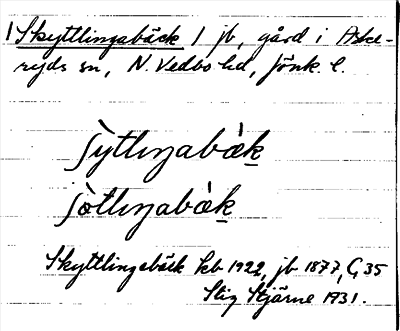 1 Skyttlingabäck 1 jb, gård i Aske-
ryds sn, N. Vedbo hd, Jönk. l.
ʃỳtlıŋabæ̀k
ʃòtlıŋabæ̀k
Skyttlingebäck kb 1922, jb 1877, G35
Stig Stjärne 1931.